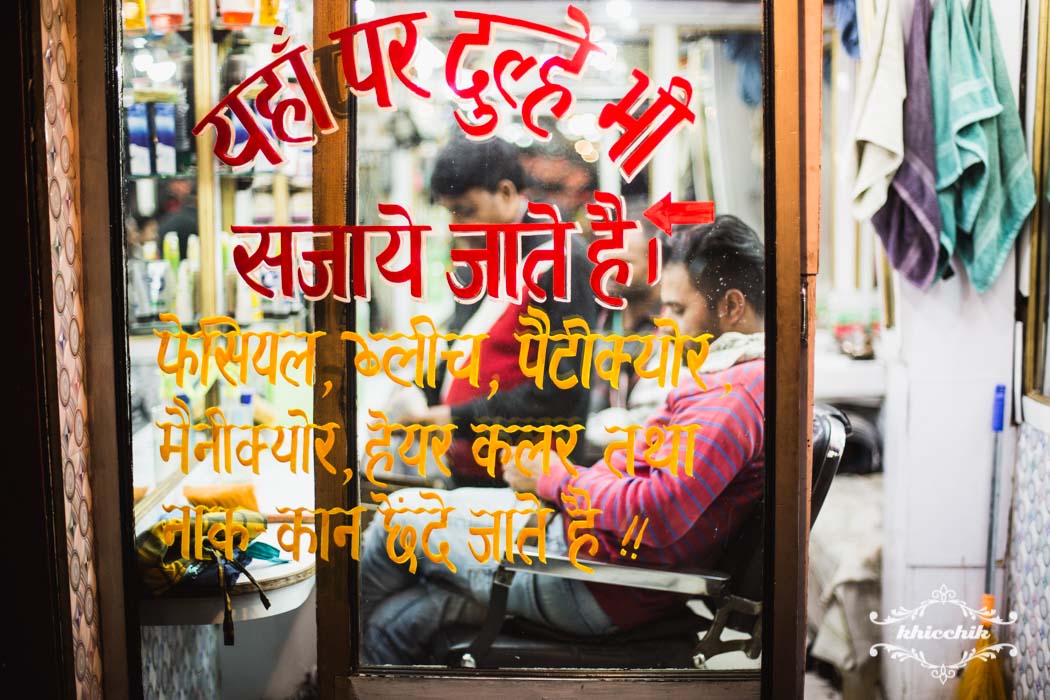 यहाँ पर दुल्हे भी
सजाये जाते है।
फेसियल, ब्लीच, पैटीक्योर,
मैनीक्योर, हेयर कलर तथा
नाक कान छेदे जाते है !!
khicchik